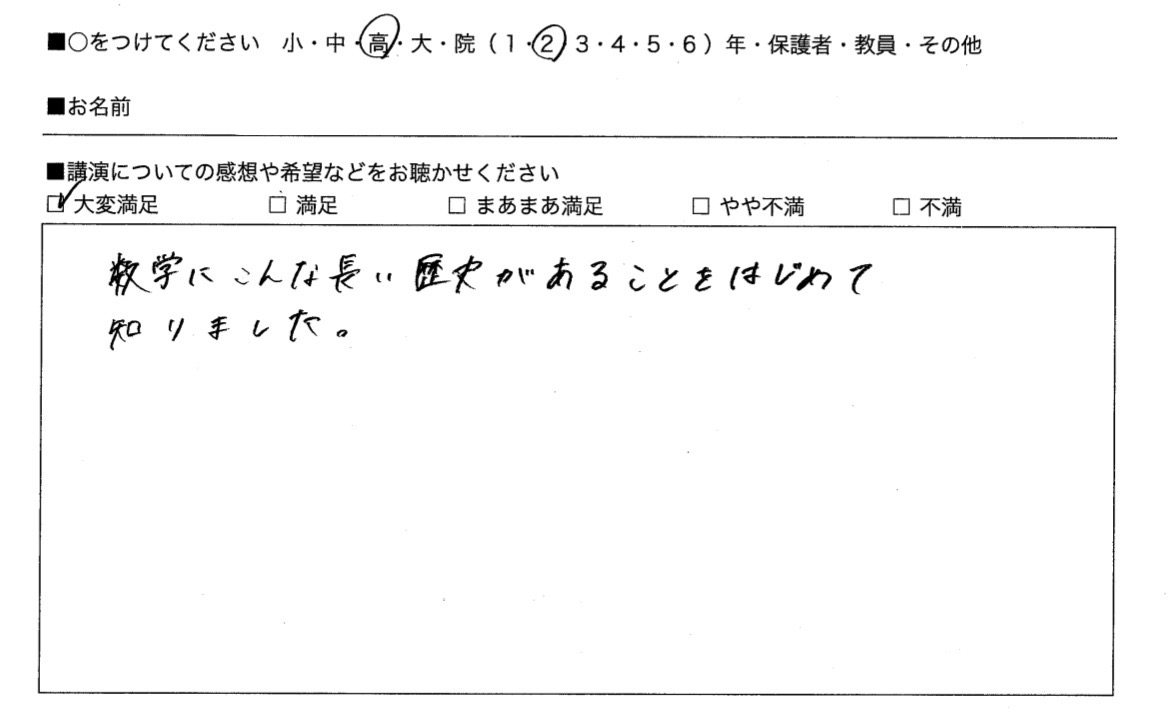 ■○をつけてください 小・中・高・大・院（1・2・3・4・5・6）年・保護者・教員・その他
■お名前
■講演についての感想や希望などをお聴かせください
☑大変満足 □満足 □まあまあ満足 □やや不満 □不満
数学にこんな長い歴史があることをはじめて
知りました。